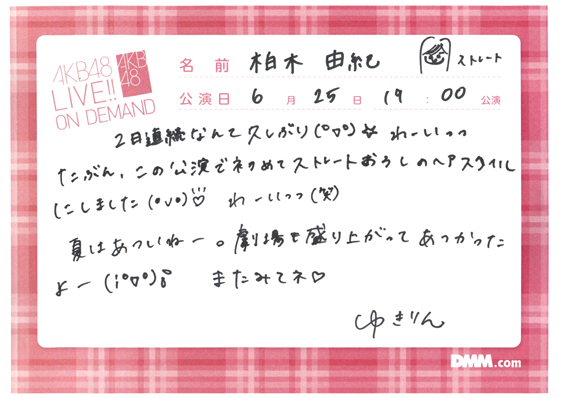 AKB48
LIVE!!
ON DEMAND
AKB
48
名前 柏木 由紀 ストレート
公演日 6月25日 19:00公演
2日連続なんて久しぶり(°▽°)☆ わーいっっ
たぶん、この公演で初めてストレートおろしのヘアスタイル
にしました(°∨°)♡ わーいっっ(笑)
夏はあついねー。劇場も盛り上がってあつかった
よー(i°▽°)i またみてネ♡
ゆきりん
DMM.com